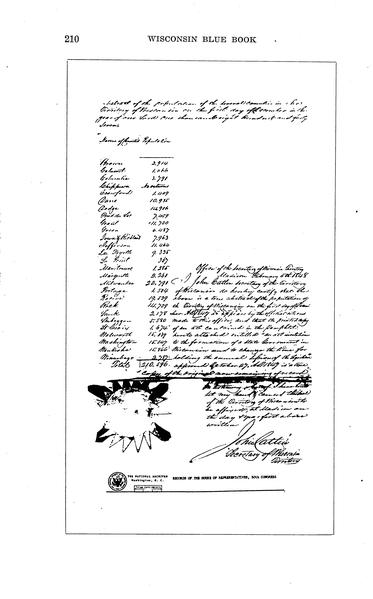 210 WISCONSIN BLUE BOOK
Abstract of the population of the several counties in the
Territory of Wisconsin on the first day of December in the
year of our Lord one thousand eight hundred and forty
Seven
Names of Counties Population
Brown 2,914
Calumet 1,066
Columbia
Chippewa No returns
Crawford 1,409
Dane 10,935
Dodge 14,906
Fond du Lac 7,409
Grant 11,720
Green 6,487
Iowa & Richland 7,963
Jefferson 11,464
La Fayette 9,335
La Point 367
Manitowoc Office of the Secretary of Wisconsin Territory
Marquette 2,261 Madison February 1848
Milwaukee 22,791 I John Catlin Secretary of the Territory
Portage 1,504 of Wisconsin do hereby certify that the
Racine 19,539 above is a true abstract of the population of
Rock 14,729 the Territory of Wisconsin on the first day of
Sauk 2,178 as appears by the official returns
Sheboygan 5,580 made to this office, and that the printed copy
St Croix 1,674 of an act contained in the pamphlet
Walworth 15,039 hereto attached entitled "An act in relation
Washington 15,547 to the formation of a State Government in
Waukesha 15,866 Wisconsin and to change the time for
Winnebago 2,787 holding the annual Session of the Legislature
Total 210,546 approved October 27, 1847 is a true
copy of the original
In testimony whereof I have here
set my hand & caused the Seal
of the Territory of Wisconsin to
be affixed, at Madison on
the day & year first above
written
John Catlin
Secretary of Wisconsin
Territory
THE NATIONAL ARCHIVES
Washington, D. C.
RECORDS OF THE HOUSE OF REPRESENTATIVES, 30th CONGRESS